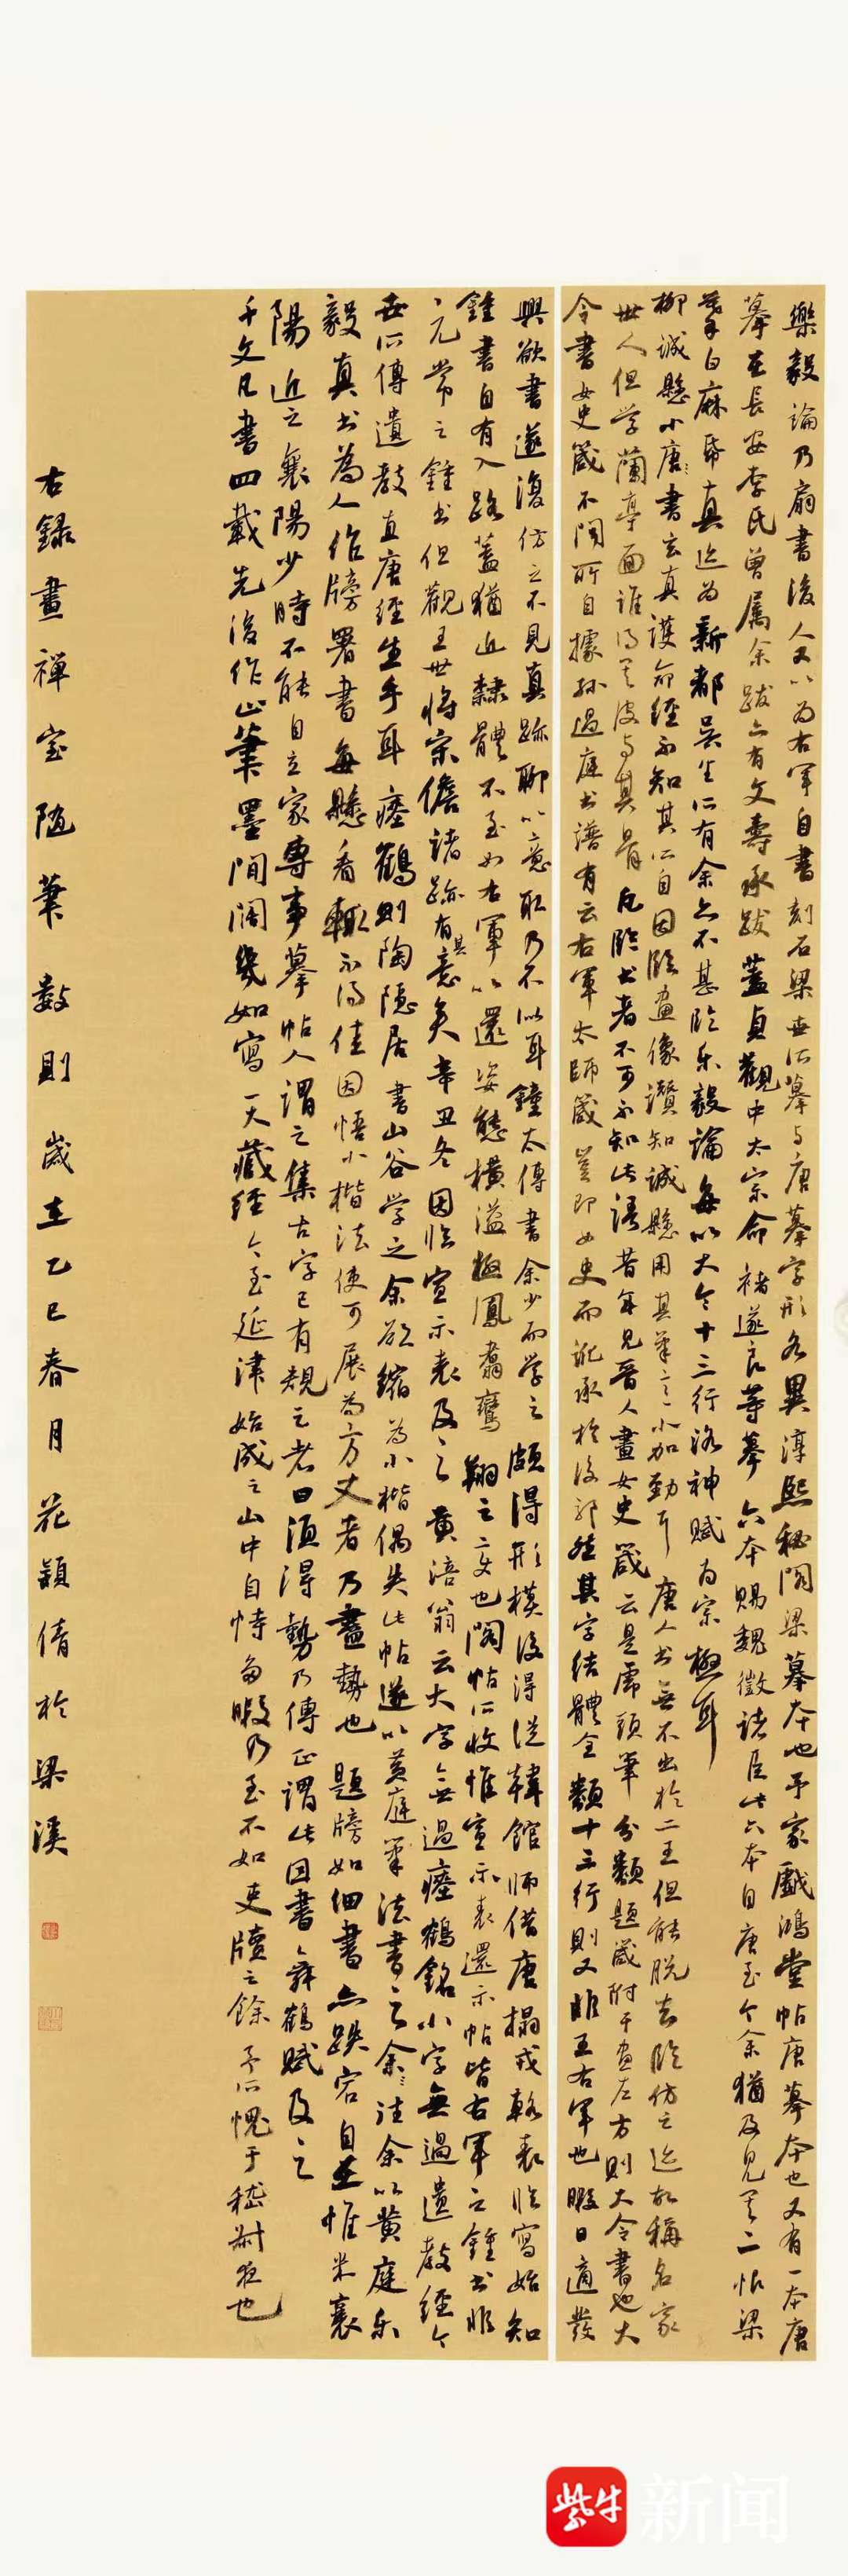 樂毅論乃扇書後人又以為右軍自書刻石梁世所摹与唐摹字形各異淳熙秘閣梁摹本也予家戲鴻堂帖唐摹本也又有一本唐
摹在長安李氏曾属余跋亦有文壽承跋蓋貞觀中太宗命褚遂良等摹六本賜魏徵諸臣此六本自唐至今余猶及見其二怅梁
摹白麻帋真迹为新都吴生所有余亦不甚臨乐毅論每以大令十三行洛神賦为宗極耳
柳誠懸小唐書云真護命經不知其所自因臨畫像讚知誠懸用其筆意小加勁耳唐人书無不出於二王但能脱去臨仿之迹故稱名家
世人但学蘭亭面誰得其皮与其骨凡臨书者不可不知此語昔年見晋人畫女史箴云是虎頭筆分類題箴附于畫左方則大令書也大
令書女史箴不聞所自據孫過庭书譜有云右軍太師箴豈即女史而訛承於後耶然其字結體全類十三行則又非王右軍也暇日適發
興欲書遂復仿之不見真跡聊以意取乃不似耳鍾太傅書余少而学之頗得形模後得従韓館師借唐榻戎輅表臨寫始知
鍾書自有入路蓋猶近隸體不至如右軍以還姿態橫溢極鳳翥鸞翔之变也閣帖所收惟宣示表還示帖皆右軍之鍾书非
元常之鍾书但觀王世將宋儋諸跡有其意矣辛丑冬因临宣示表及之黄涪翁云大字無過瘞鶴銘小字無過遺教經今
世所傳遺教直唐經生手耳瘞鶴則陶隱居書山谷学之余欲縮为小楷偶失此帖遂以黄庭筆法書之余註余以黄庭乐
毅真书為人作牓署書每懸看輒不得佳因悟小楷法使可展为方丈者乃盡勢也題牓如細書亦跌宕自在惟米襄
陽近之襄陽少時不能自立家專事摹帖人謂之集古字已有規之者曰須得勢乃傳正謂此因書舞鶴賦及之
千文凡書四載先後作止筆墨間闊幾如寫一大藏經今至延津始成之山中自恃多暇乃至不如吏牘之餘予所愧于嵇尉在也
右録畫禅室随筆數則歲在乙巳春月花颖倩於梁溪
紫牛新闻